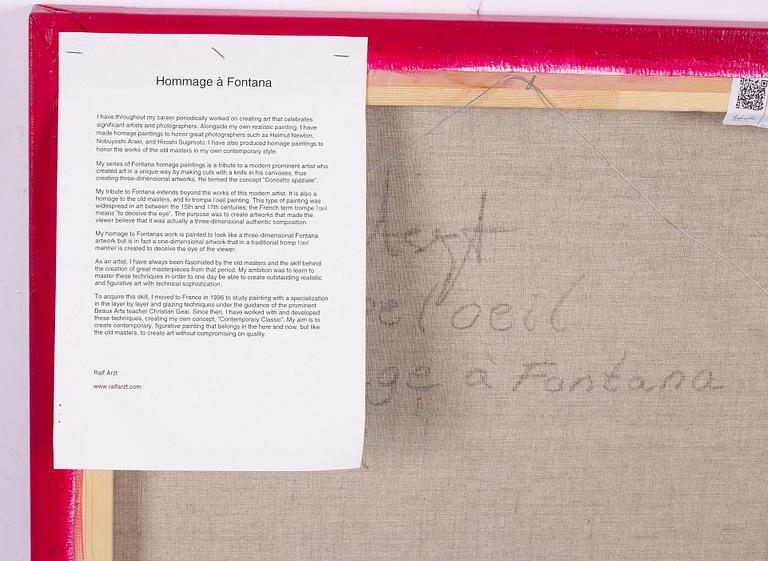 Hommage à Fontana
I have throughout my career periodically worked on creating art that celebrates
significant artists and photographers. Alongside my own realistic painting, I have
made homage paintings to honor great photographers such as Helmut Newton,
Nobuyoshi Araki, and Hiroshi Sugimoto. I have also produced homage paintings to
honor the works of the old masters in my own contemporary style.
My series of Fontana homage paintings is a tribute to a modern prominent artist who
created art in a unique way by making cuts with a knife in his canvases, thus
creating three-dimensional artworks. He termed the concept "Concetto spaziale".
My tribute to Fontana extends beyond the works of this modern artist. It is also a
homage to the old masters, and to trompe l'oeil painting. This type of painting was
widespread in art between the 15th and 17th centuries; the French term trompe l'œil
means "to deceive the eye". The purpose was to create artworks that made the
viewer believe that it was actually a three-dimensional authentic composition.
My homage to Fontanas work is painted to look like a three-dimensional Fontana
artwork but is in fact a one-dimensional artwork that in a traditional tromp l'œil
manner is created to deceive the eye of the viewer.
As an artist, I have always been fascinated by the old masters and the skill behind
the creation of great masterpieces from that period. My ambition was to learn to
master these techniques in order to one day be able to create outstanding realistic
and figurative art with technical sophistication.
To acquire this skill, I moved to France in 1996 to study painting with a specialization
in the layer by layer and glazing techniques under the guidance of the prominent
Beaux Arts teacher Christian Geai. Since then, I have worked with and developed
these techniques, creating my own concept, "Contemporary Classic". My aim is to
create contemporary, figurative painting that belongs in the here and now, but like
the old masters, to create art without compromising on quality.
Ralf Arzt
www.ralfarzt.com
l'oeil
age à Fontana